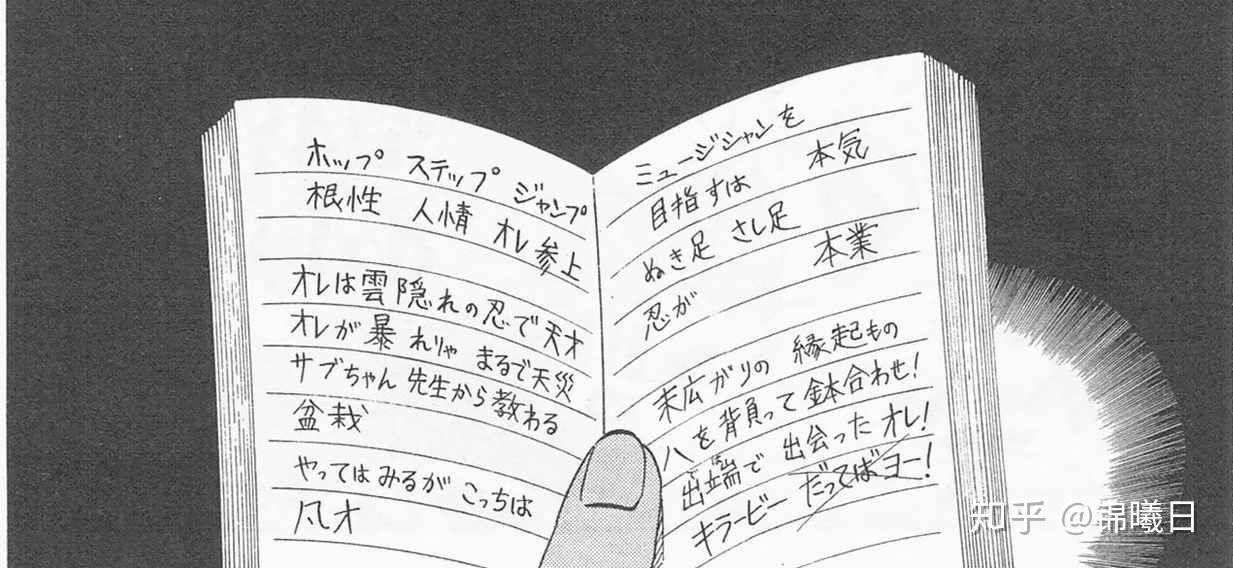 ホップ ステップ ジャンプ
根性 人情 オレ参上
オレは雲隠れの忍で天才
オレが暴れりゃ まるで天災
サブちゃん先生から教わる
盆栽
やってはみるが こっちは
凡才
ミュージシャンを
目指すは 本気
ぬき足 さし足
忍が 本業
末広がりの 縁起もの
八を背負って 鉢合わせ!
出端で 出会った オレ!
キラービー だってばヨー!
知乎 @锦曦日